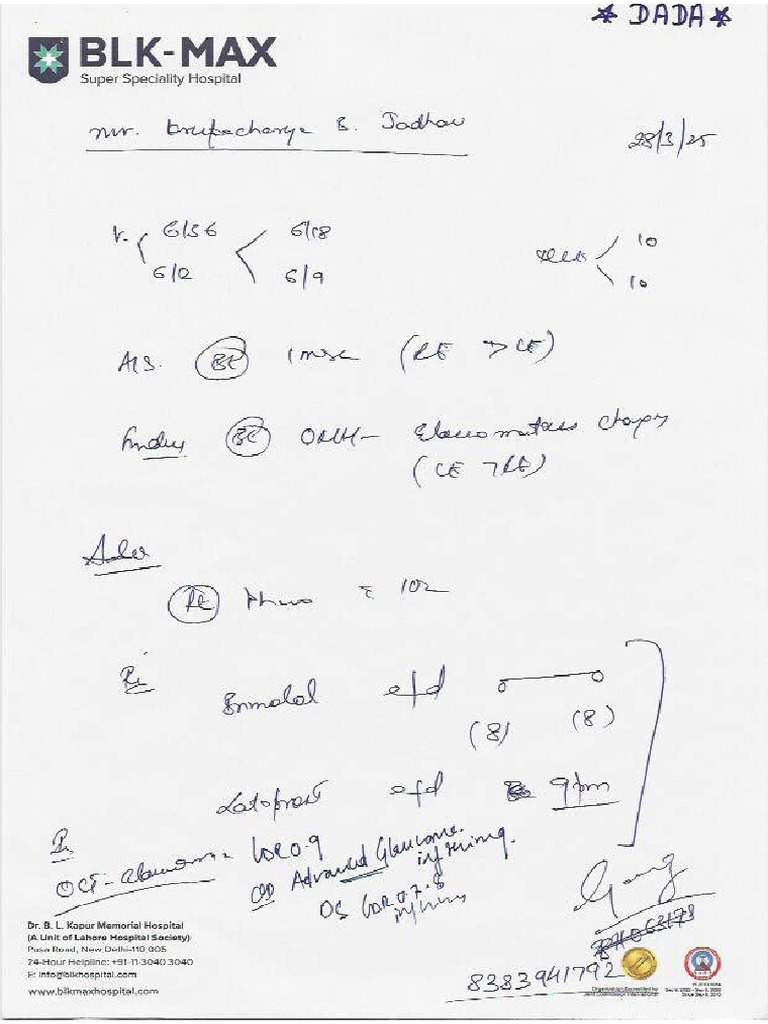 * DADA *
BLK-MAX
Super Speciality Hospital
Mr. B. Jadhav
28/3/25
V. 6/36 6/18
6/12 6/9
10
10
A/S. BE IMSC (RE > LE)
Fundus BE ONH - Glaucomatous changes
(LE > RE)
Adv
RE Phaco c IOL
Rx
Brimolol e/d
(8) (8)
Latoprost e/d 9pm
OCT - CDR 0.9
OD Advanced Glaucoma.
inf thinning.
OS CDR 0.7-8
Dr. B. L. Kapur Memorial Hospital
(A Unit of Lahore Hospital Society)
Pusa Road, New Delhi-110 005
24-Hour Helpline: +91-11-3040 3040
E: info@blkhospital.com
www.blkmaxhospital.com
8383941792
Organization Accredited by
Joint Commission International